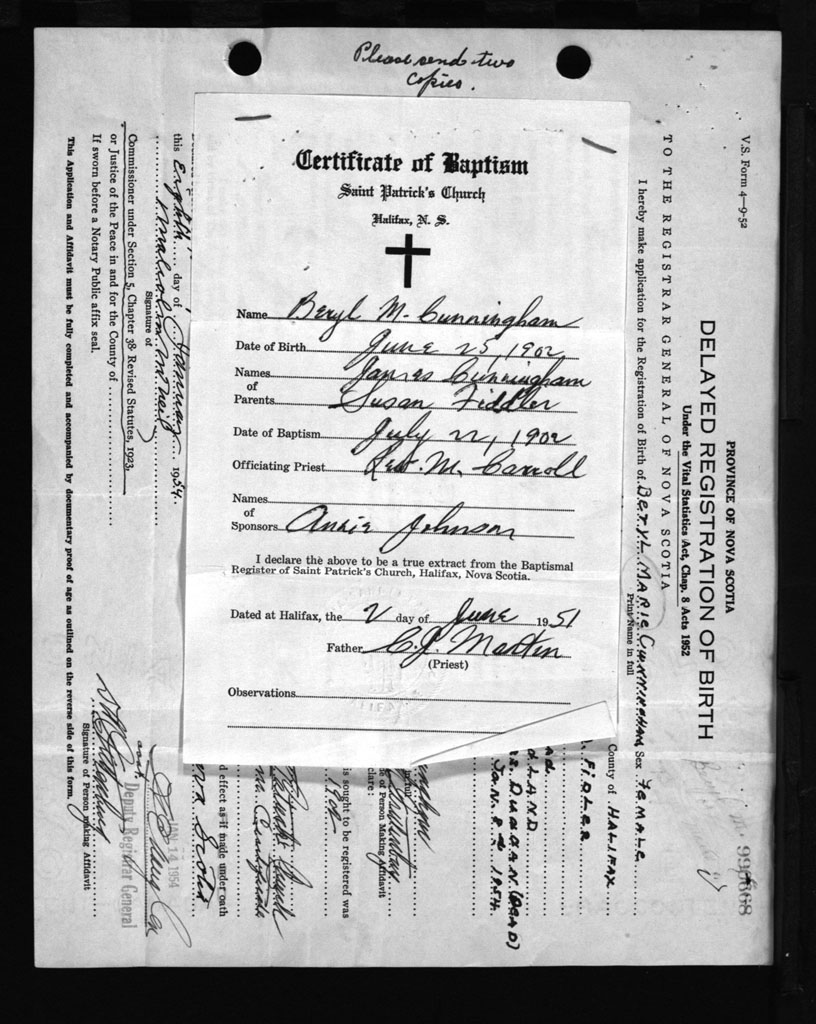 Please send two
copies.
Certificate of Baptism
Saint Patrick's Church
Halifax, N. S.
Name Beryl M. Cunningham
Date of Birth June 25, 1902
Names James Cunningham
of
Parents Susan Fiddler
Date of Baptism July 22, 1902
Officiating Priest Rev. M. Carroll
Names
of
Sponsors Annie Johnson
I declare the above to be a true extract from the Baptismal
Register of Saint Patrick's Church, Halifax, Nova Scotia.
Dated at Halifax, the 2 day of June 1951
Father C. J. Martin
(Priest)
Observations
V.S. Form 4—9-52
PROVINCE OF NOVA SCOTIA
DELAYED REGISTRATION OF BIRTH
Under the Vital Statistics Act, Chap. 8 Acts 1952
TO THE REGISTRAR GENERAL OF NOVA SCOTIA
I hereby make application for the Registration of Birth of BERYL MARIE CUNNINGHAM Sex FEMALE
Print Name in full
County of HALIFAX
FIDLER
LAND
DUGGAN (DEAD)
JAN. 8th 1954
e of Person Making Affidavit
clare:
is sought to be registered was
d effect as if made under oath
NOVA SCOTIA
this Eighth day of January 1954
Signature of
Commissioner under Section 5, Chapter 38 Revised Statutes, 1923,
or Justice of the Peace in and for the County of
If sworn before a Notary Public affix seal.
Signature of Person making Affidavit
This Application and Affidavit must be fully completed and accompanied by documentary proof of age as outlined on the reverse side of this form.
JAN 14 1954
Deputy Registrar General